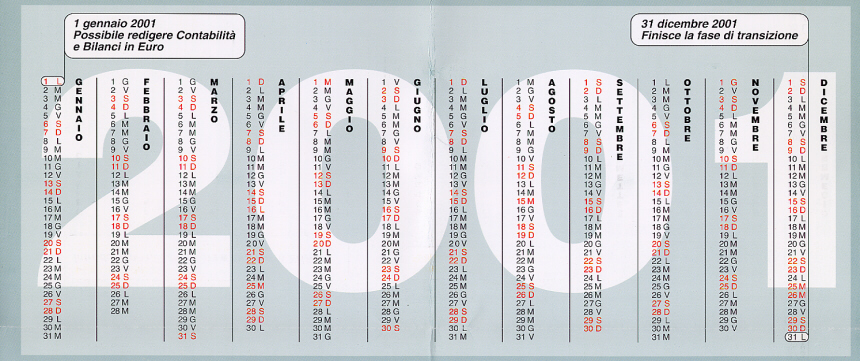 1 gennaio 2001
Possibile redigere Contabilità
e Bilanci in Euro
31 dicembre 2001
Finisce la fase di transizione
2001
GENNAIO
1 L
2 M
3 M
4 G
5 V
6 S
7 D
8 L
9 M
10 M
11 G
12 V
13 S
14 D
15 L
16 M
17 M
18 G
19 V
20 S
21 D
22 L
23 M
24 M
25 G
26 V
27 S
28 D
29 L
30 M
31 M
FEBBRAIO
1 G
2 V
3 S
4 D
5 L
6 M
7 M
8 G
9 V
10 S
11 D
12 L
13 M
14 M
15 G
16 V
17 S
18 D
19 L
20 M
21 M
22 G
23 V
24 S
25 D
26 L
27 M
28 M
MARZO
1 G
2 V
3 S
4 D
5 L
6 M
7 M
8 G
9 V
10 S
11 D
12 L
13 M
14 M
15 G
16 V
17 S
18 D
19 L
20 M
21 M
22 G
23 V
24 S
25 D
26 L
27 M
28 M
29 G
30 V
31 S
APRILE
1 D
2 L
3 M
4 M
5 G
6 V
7 S
8 D
9 L
10 M
11 M
12 G
13 V
14 S
15 D
16 L
17 M
18 M
19 G
20 V
21 S
22 D
23 L
24 M
25 M
26 G
27 V
28 S
29 D
30 L
MAGGIO
1 M
2 M
3 G
4 V
5 S
6 D
7 L
8 M
9 M
10 G
11 V
12 S
13 D
14 L
15 M
16 M
17 G
18 V
19 S
20 D
21 L
22 M
23 M
24 G
25 V
26 S
27 D
28 L
29 M
30 M
31 G
GIUGNO
1 V
2 S
3 D
4 L
5 M
6 M
7 G
8 V
9 S
10 D
11 L
12 M
13 M
14 G
15 V
16 S
17 D
18 L
19 M
20 M
21 G
22 V
23 S
24 D
25 L
26 M
27 M
28 G
29 V
30 S
LUGLIO
1 D
2 L
3 M
4 M
5 G
6 V
7 S
8 D
9 L
10 M
11 M
12 G
13 V
14 S
15 D
16 L
17 M
18 M
19 G
20 V
21 S
22 D
23 L
24 M
25 M
26 G
27 V
28 S
29 D
30 L
31 M
AGOSTO
1 M
2 G
3 V
4 S
5 D
6 L
7 M
8 M
9 G
10 V
11 S
12 D
13 L
14 M
15 M
16 G
17 V
18 S
19 D
20 L
21 M
22 M
23 G
24 V
25 S
26 D
27 L
28 M
29 M
30 G
31 V
SETTEMBRE
1 S
2 D
3 L
4 M
5 M
6 G
7 V
8 S
9 D
10 L
11 M
12 M
13 G
14 V
15 S
16 D
17 L
18 M
19 M
20 G
21 V
22 S
23 D
24 L
25 M
26 M
27 G
28 V
29 S
30 D
OTTOBRE
1 L
2 M
3 M
4 G
5 V
6 S
7 D
8 L
9 M
10 M
11 G
12 V
13 S
14 D
15 L
16 M
17 M
18 G
19 V
20 S
21 D
22 L
23 M
24 M
25 G
26 V
27 S
28 D
29 L
30 M
31 M
NOVEMBRE
1 G
2 V
3 S
4 D
5 L
6 M
7 M
8 G
9 V
10 S
11 D
12 L
13 M
14 M
15 G
16 V
17 S
18 D
19 L
20 M
21 M
22 G
23 V
24 S
25 D
26 L
27 M
28 M
29 G
30 V
DICEMBRE
1 S
2 D
3 L
4 M
5 M
6 G
7 V
8 S
9 D
10 L
11 M
12 M
13 G
14 V
15 S
16 D
17 L
18 M
19 M
20 G
21 V
22 S
23 D
24 L
25 M
26 M
27 G
28 V
29 S
30 D
31 L